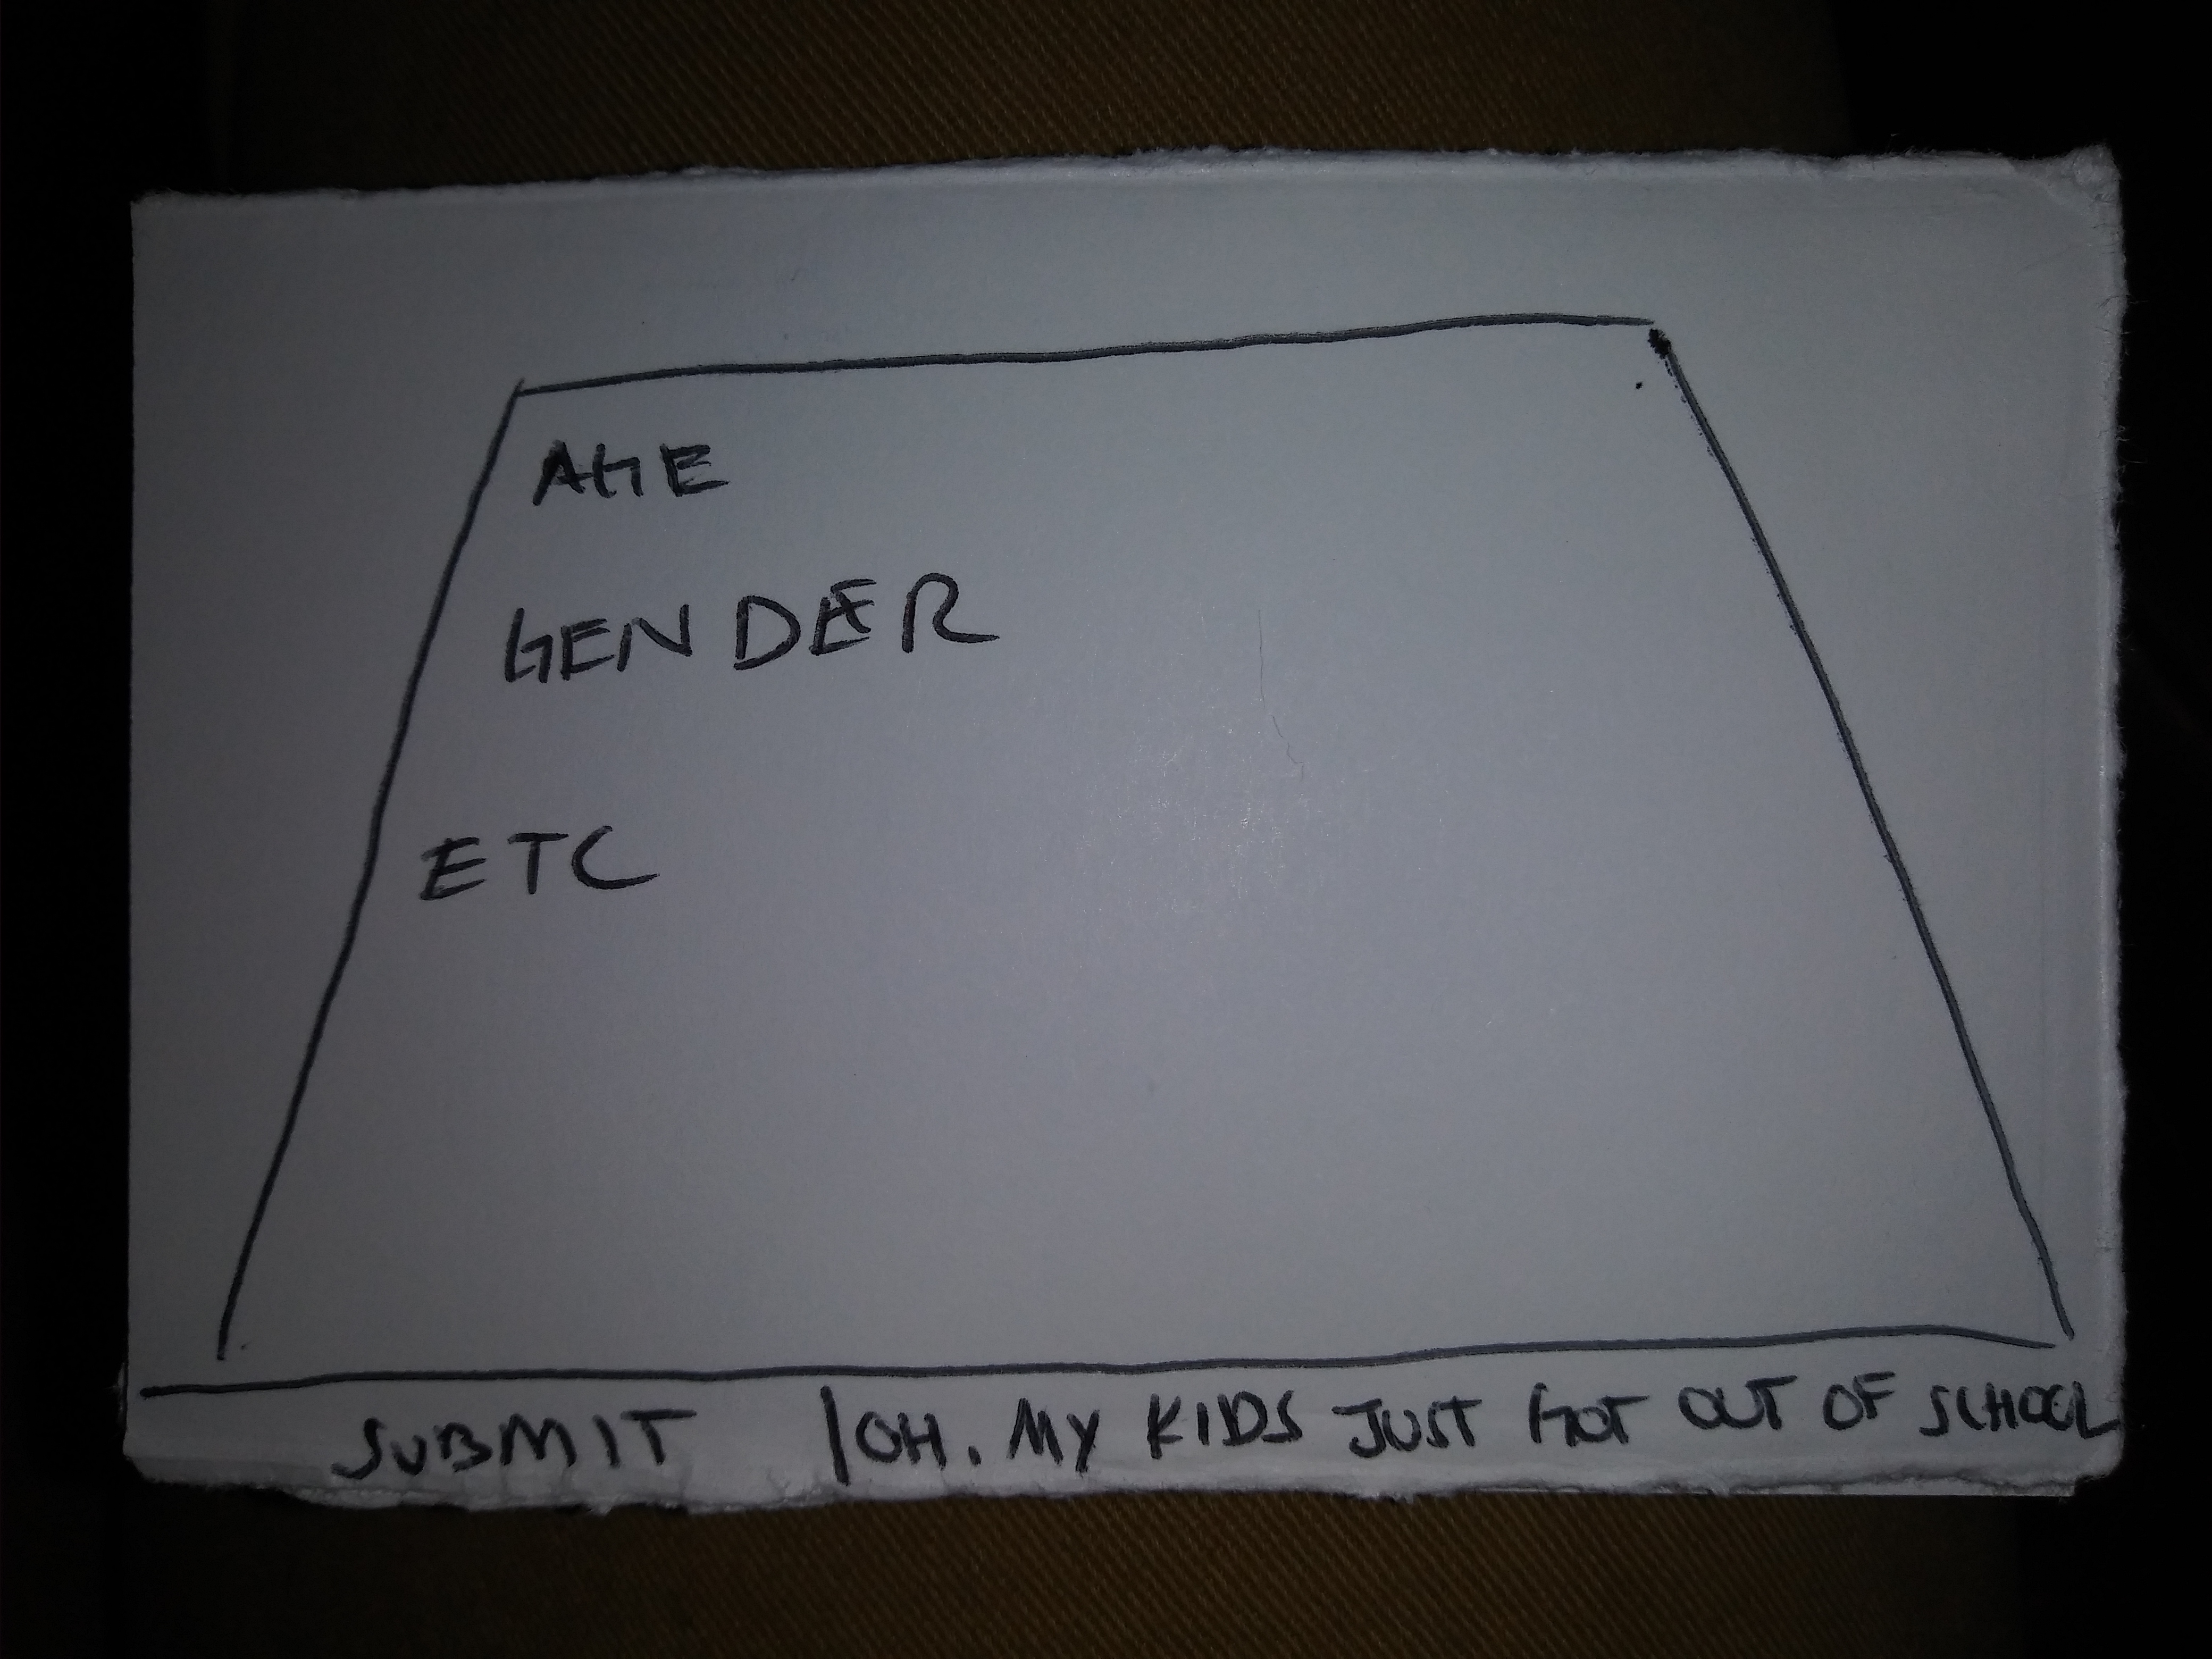 AGE
GENDER
ETC
SUBMIT / OH. MY KIDS JUST GOT OUT OF SCHOOL